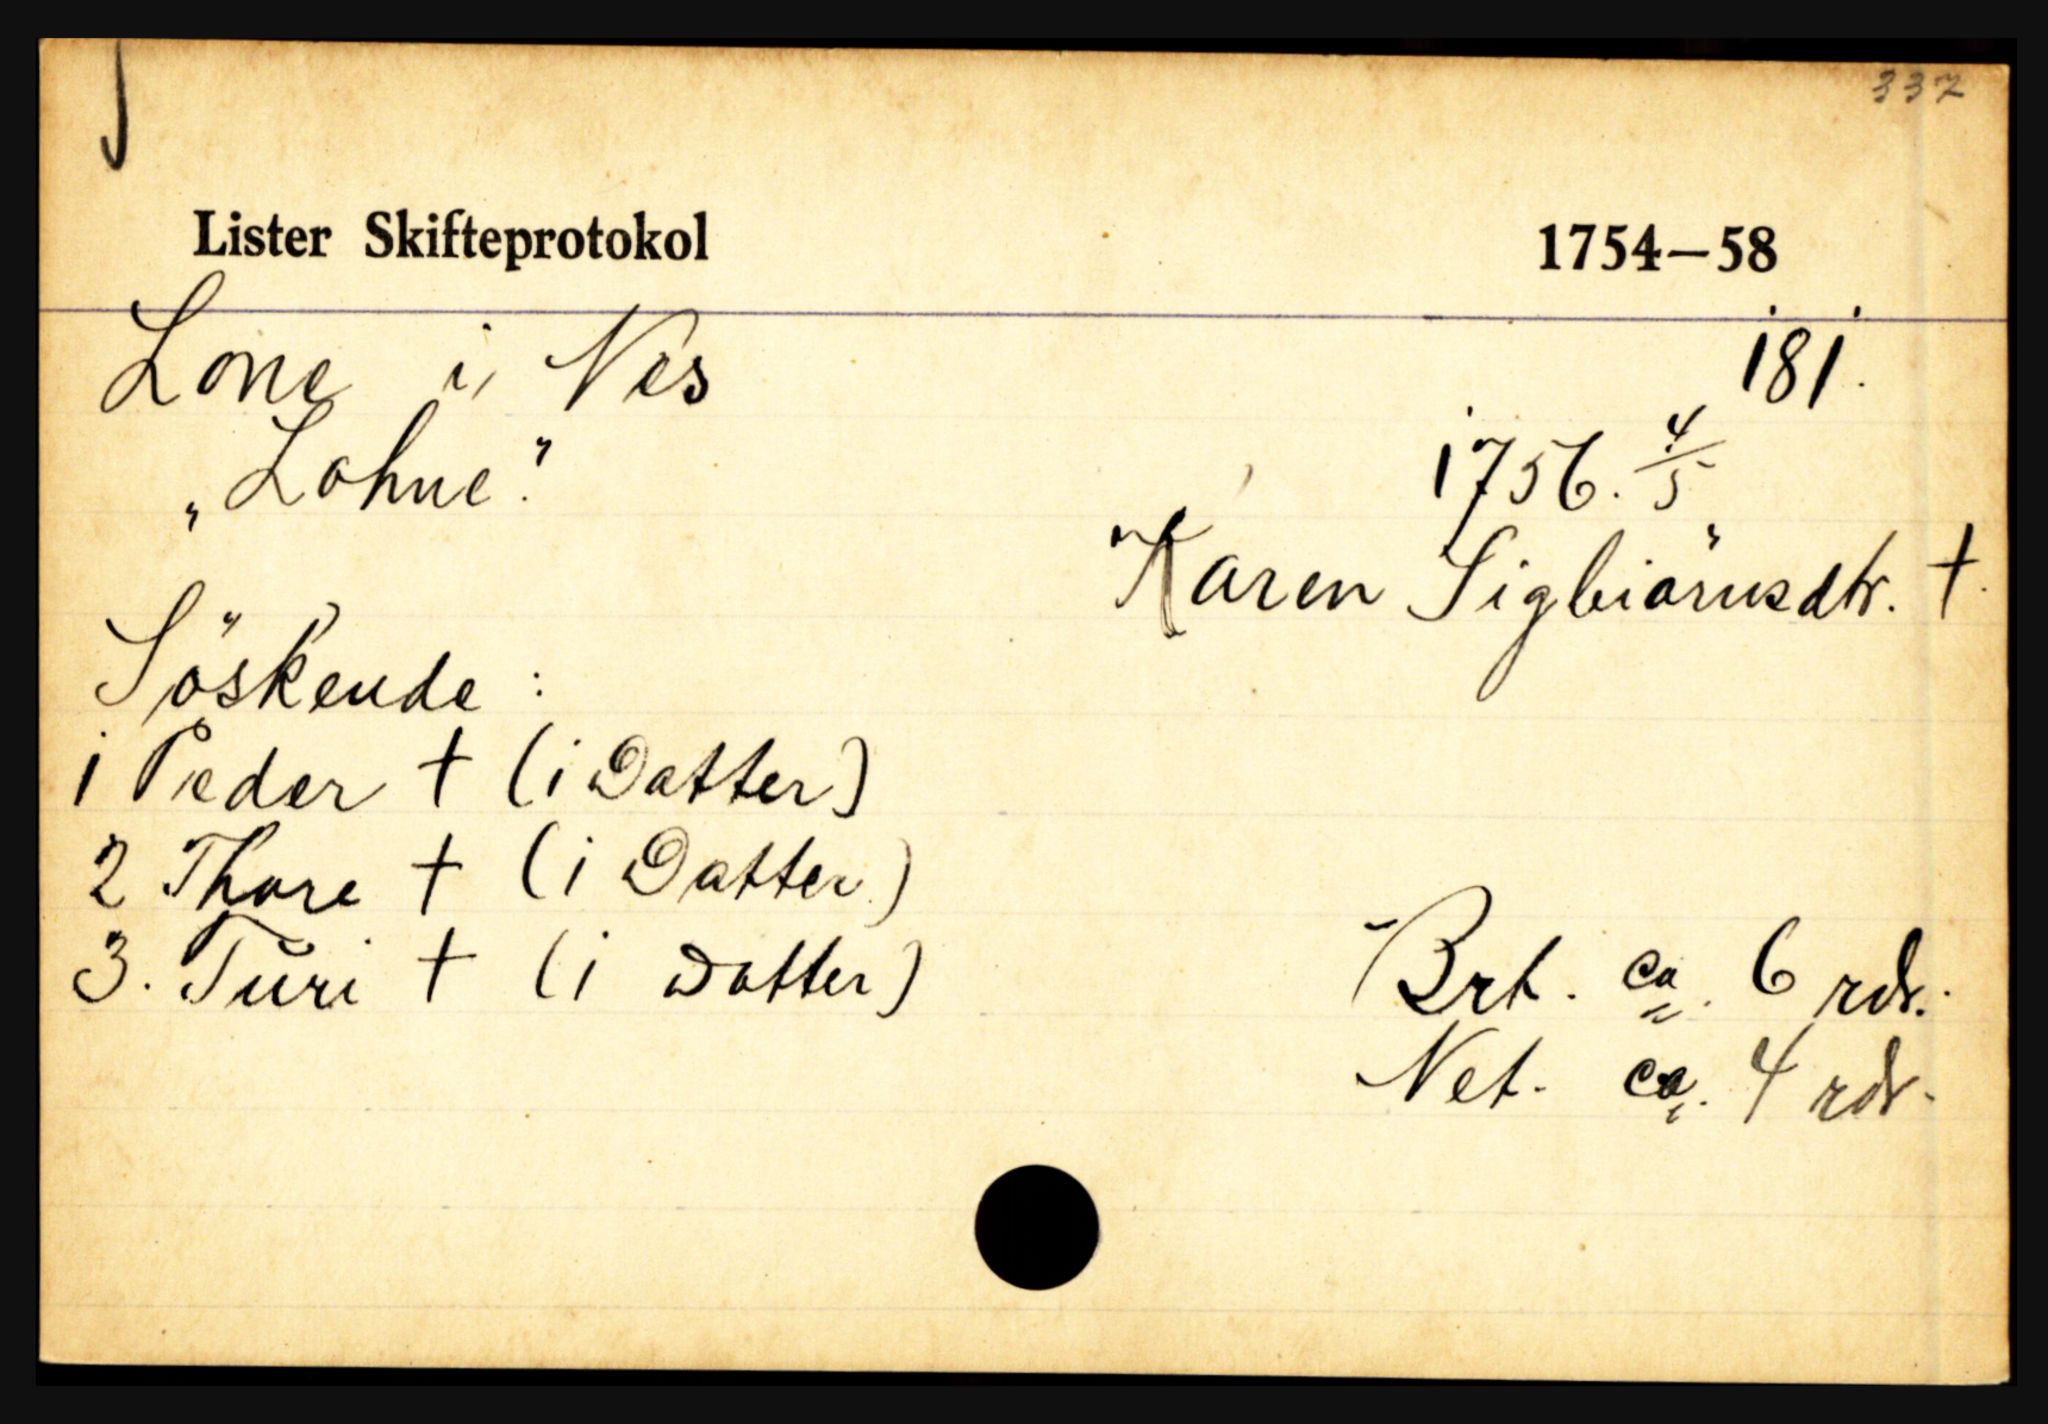 337
Lister Skifteprotokol 1754—58
Lone i Nes 181.
„Lohne." 1756. 4/5
Karen Sigbiörnsdtr. †.
Söskende :
1 Peder † (1 Datter)
2 Thore † (1 Datter)
3. Turi † (1 Datter)
Brt. ca. 6 rdr.
Net. ca. 4 rdr.